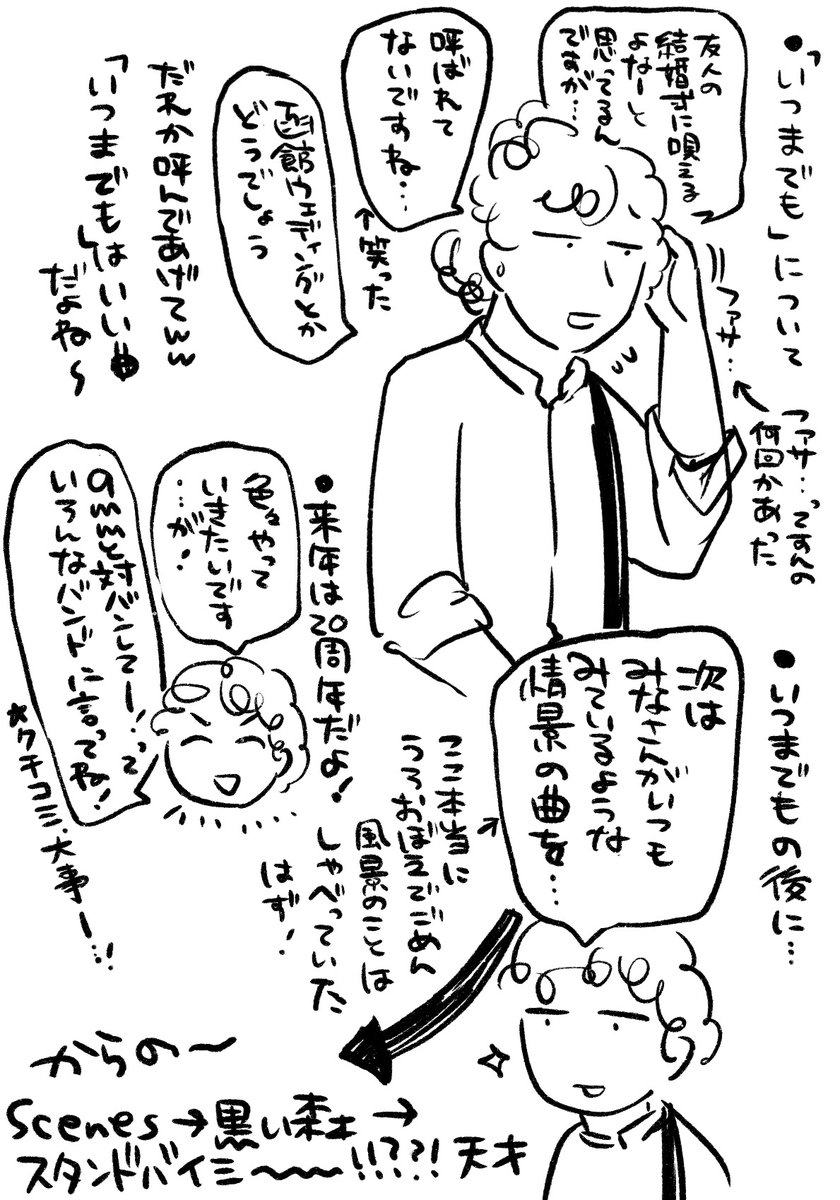 ●「いつまでも」について
友人の
結婚式に唄える
よなーと
思ってるん
ですが…
呼ばれて
ないですね…
↑笑った
函館ウェディングとか
どうでしょう
だれか呼んであげてww
「いつまでもはいい曲」
だよね〜
ファサ…
ファサ…ってすんの
何回かあった
●来年は20周年だよ！
色々やって
いきたいです
…が！
と対バンしてー！って
いろんなバンドに言ってね！
*クチコミ、大事ー…！
●いつまでもの後に…
次は
みなさんがいつも
みているような
情景の曲を…
ここ本当に
うろおぼえでごめん
風景のことは
しゃべっていた
はず！
からの〜
Scenes→黒い森→
スタンドバイミー〜〜!!??! 天才